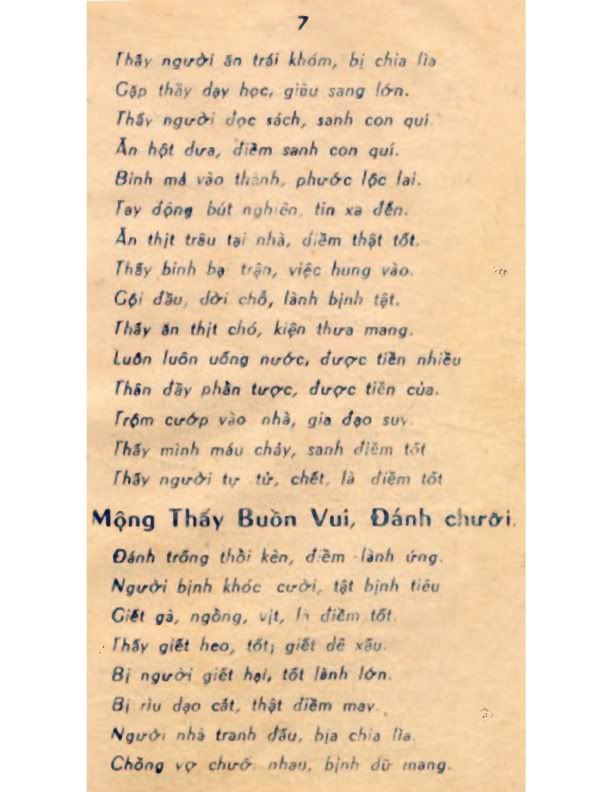 7
Thấy người ăn trái khóm, bị chia lìa
Gặp thầy dạy học, giàu sang lớn.
Thấy người đọc sách, sanh con quí
Ăn hột dưa, điềm sanh con quí.
Binh mã vào thành, phước lộc lai.
Tay động bút nghiên, tin xa đến.
Ăn thịt trâu tại nhà, điềm thật tốt.
Thấy binh bại trận, việc hung vào.
Gội đầu, dời chỗ, lành bịnh tật.
Thấy ăn thịt chó, kiện thưa mang.
Luôn luôn uống nước, được tiền nhiều
Thân đầy phần tược, được tiền của.
Trộm cướp vào nhà, gia đạo suy.
Thấy mình máu chảy, sanh điềm tốt
Thấy người tự tử, chết, là điềm tốt
Mộng Thấy Buồn Vui, Đánh chười.
Đánh trống thồi kèn, điềm lành ứng.
Người bịnh khóc cười, tật bịnh tiêu
Giết gà, ngỗng, vịt, là điềm tốt.
Thấy giết heo, tốt; giết dê xấu.
Bị người giết hại, tốt lành lớn.
Bị rìu dạo cắt, thật điềm may.
Người nhà tranh đấu, bịa chia lìa.
Chồng vợ chưởi nhau, bịnh dữ mang.